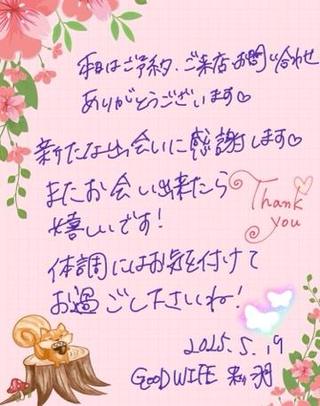 本日はご予約、ご来店お問い合わせ
ありがとうございます♡
新たな出会いに感謝します♡
またお会い出来たら
嬉しいです!
Thank
you
体調にはお気を付けて
お過ごし下さいね!
2025.5.19
GOOD WIFE